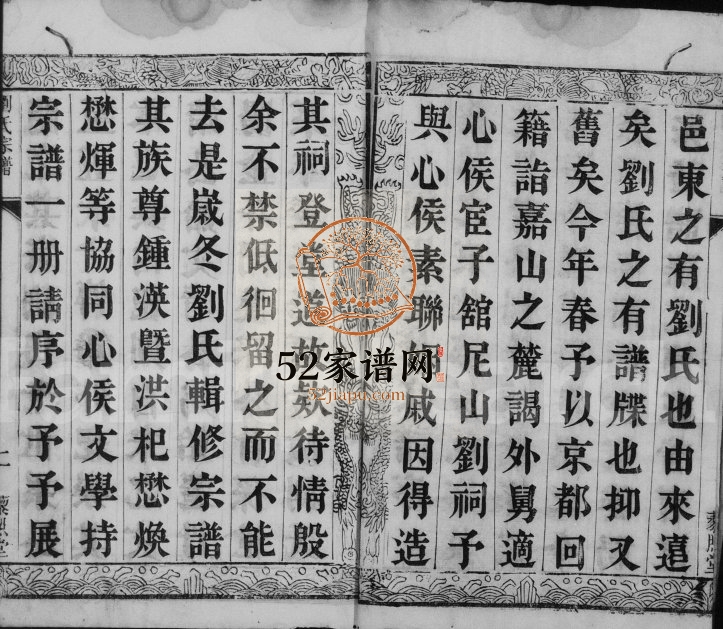 邑東之有劉氏也由來遠
矣劉氏之有譜牒也抑又
舊矣今年春予以京都回
籍詣嘉山之麓謁外舅適
心侯宦子舘尼山劉祠予
與心侯素聯姻戚因得造
其祠登堂道故欵待情殷
余不禁低徊留之而不能
去是嵗冬劉氏輯修宗譜
其族尊鍾渶暨洪杞懋煥
懋煇等協同心侯文學持
宗譜一册請序於予予展
劉氏宗譜
52家谱网
52jiapu.com